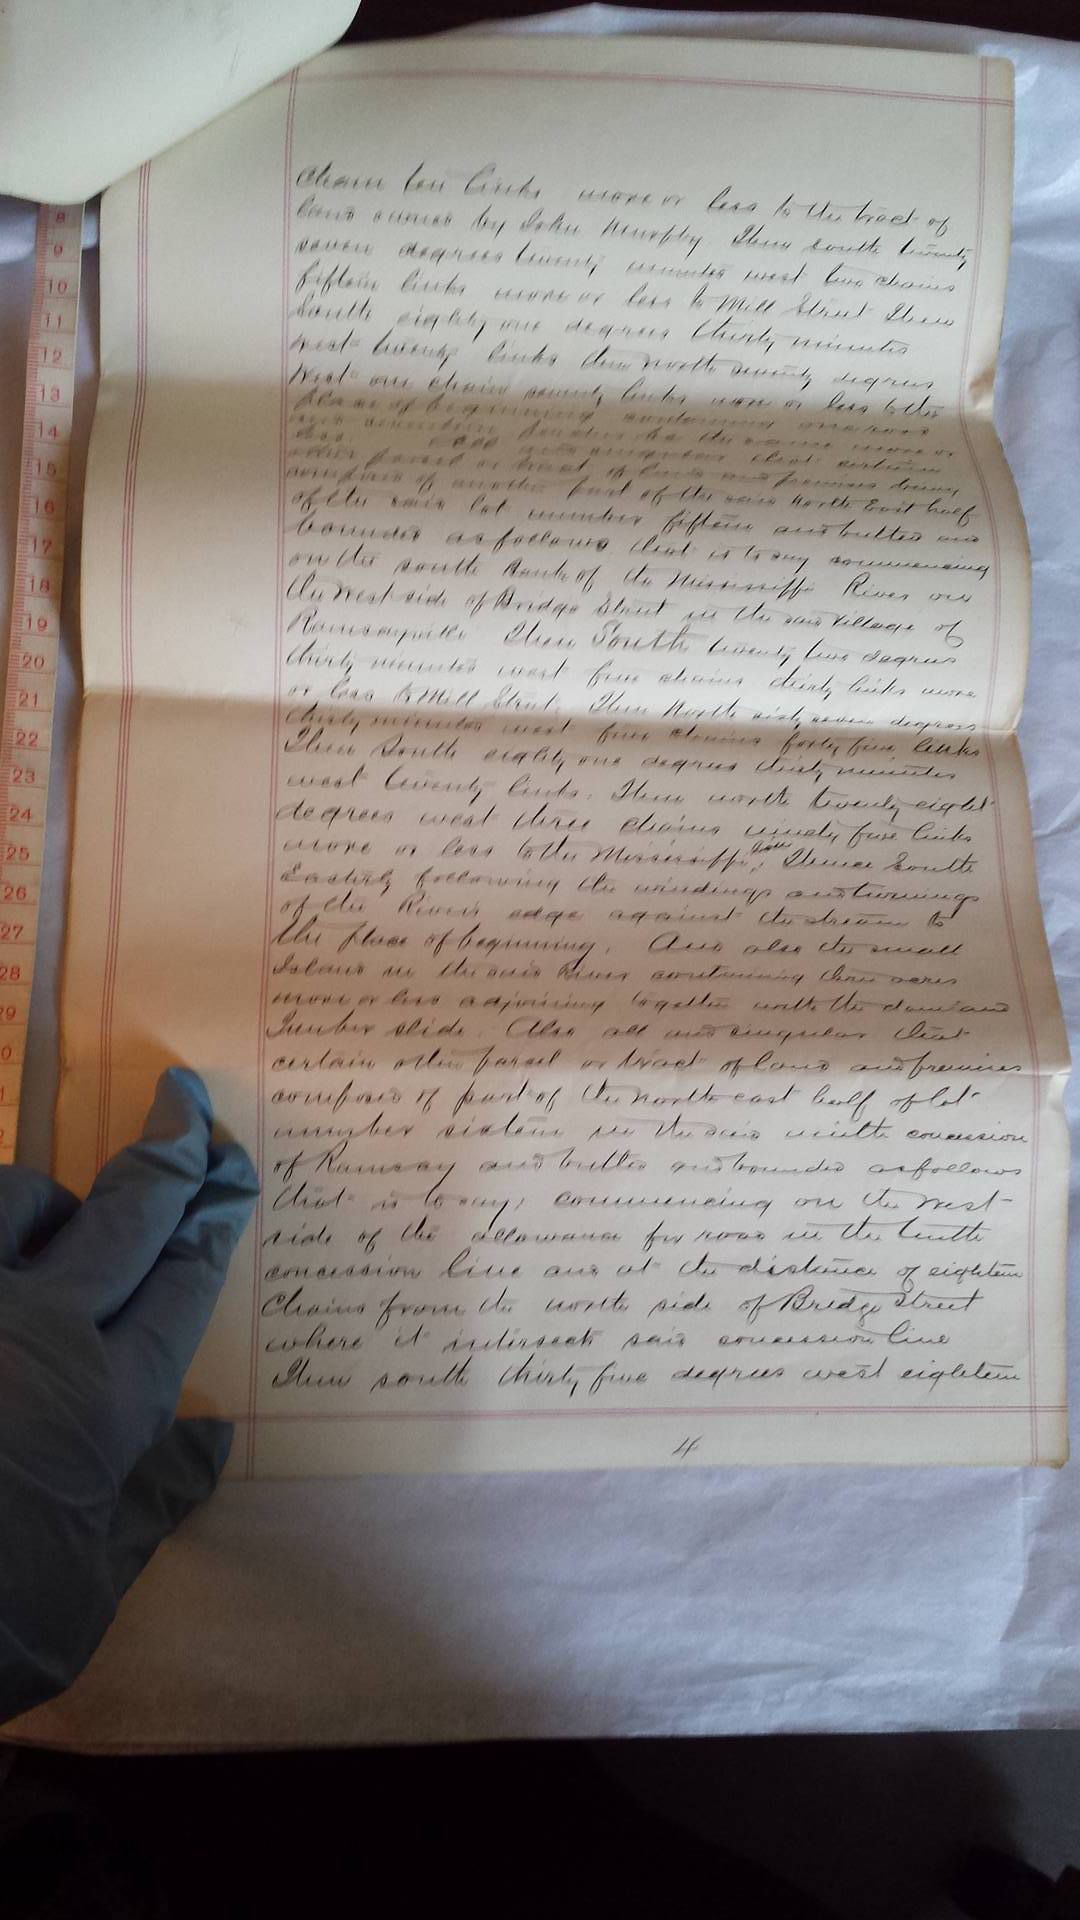 chain ten links more or less to the tract of
land owned by John Murphy Then south twenty
seven degrees twenty minutes west two chains
fifteen links more or less to Mill Street Then
South eighty one degrees thirty minutes
west twenty links then north seventy degrees
West one chain seventy links more or less to the
place of beginning containing one rood
and seventeen perches be the same more or
less. Also all and singular that certain
other parcel or tract of land and premises being
composed of another part of the said North East half
of the said lot number fifteen and butted and
bounded as follows that is to say commencing
on the south Bank of the Mississippi River on
the West side of Bridge Street in the said Village of
Ramsayville Then South twenty two degrees
thirty minutes west five chains thirty links more
or less to Mill Street. Then North sixty seven degrees
thirty minutes west five chains forty five links
Then South eighty one degrees thirty minutes
west twenty links. Then north twenty eight
degrees west three chains ninety five links
more or less to the Mississippi, Thence South
Easterly following the windings and turnings
of the River's edge against the stream to
the place of beginning. And also the small
Island in the said River containing three acres
more or less adjoining together with the dam and
Timber slide. Also all and singular that
certain other parcel or tract of land and premises
composed of part of the north east half of lot
number sixteen in the said ninth concession
of Ramsay and butted and bounded as follows
that is to say, commencing on the West
side of the allowance for road in the tenth
concession line and at the distance of eighteen
Chains from the north side of Bridge Street
where it intersects said concession line
Then south thirty five degrees west eighteen
4
8
9
10
11
12
13
14
15
16
17
18
19
20
21
22
23
24
25
26
27
28
29
0
1
2